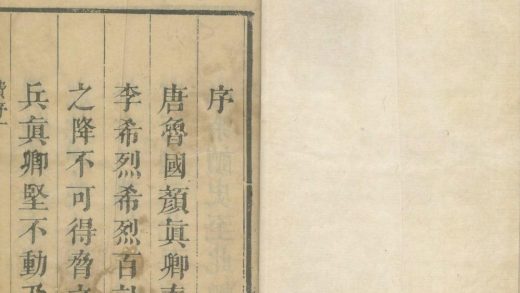 序
唐魯國顏真卿奉
李希烈希烈百計
之降不可得脅之
兵真卿堅不動乃